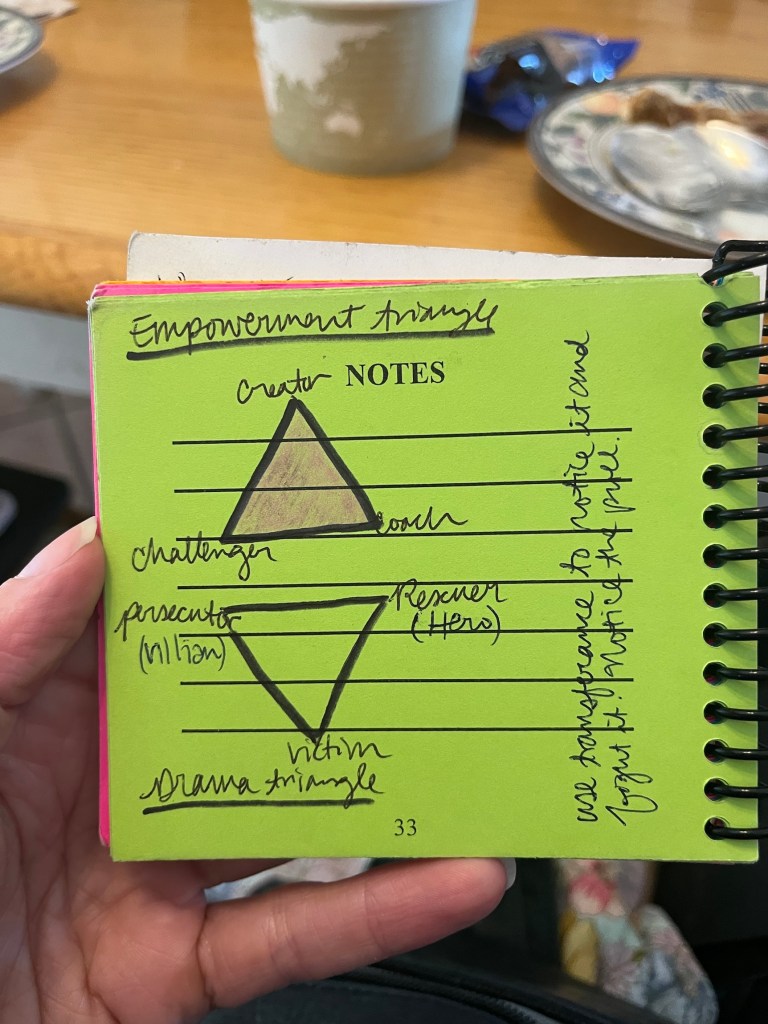 Empowerment triangle
NOTES
Creator
Coach
Challenger
Rescuer
(Hero)
persecutor
(villian)
victim
Drama triangle
33
use transferance to notice it and
it. Notice the pull.